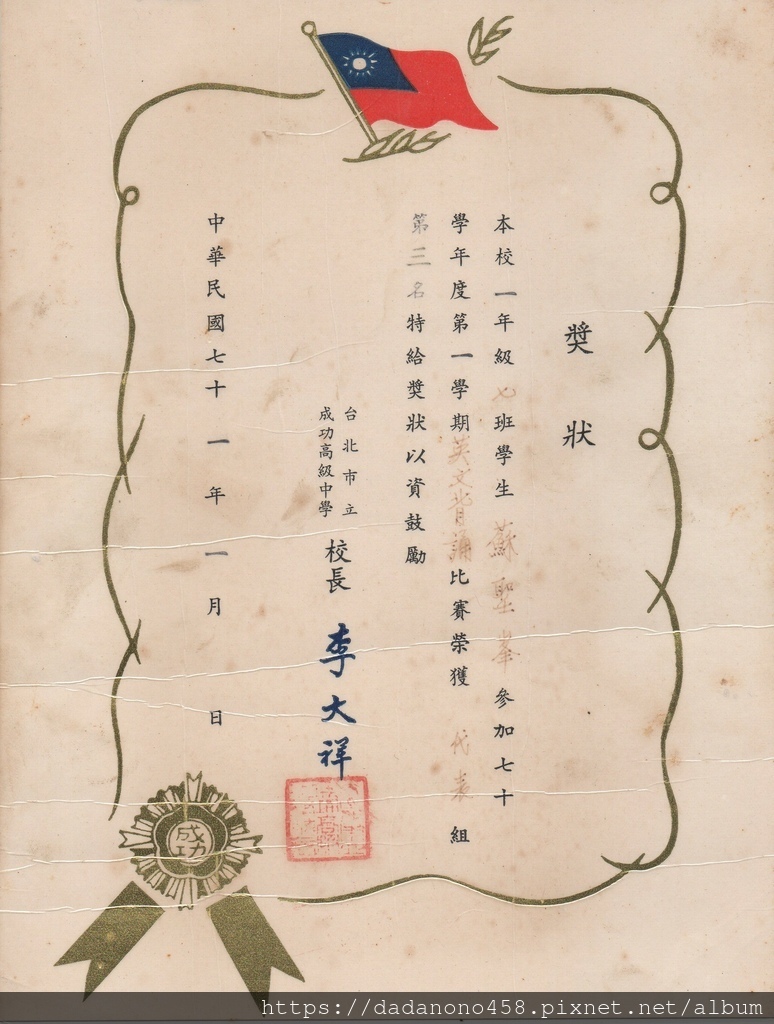 獎狀
本校一年級七班學生蘇聖峯參加七十
學年度第一學期英文背誦比賽榮獲代表組
第三名特給獎狀以資鼓勵
台北市立
成功高級中學
校長李大祥
中華民國七十一年一月日
成功
https://dadanono458.pixnet.net/album